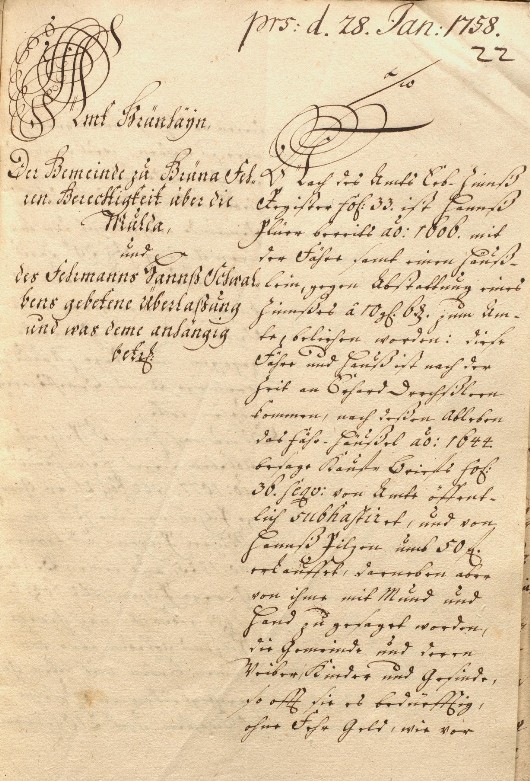 prs: d. 28. Jan: 1758.
22
Amt Gränhäyn,
Der Gemeinde zu Grüna Feh-
ren Berechtigkeit über die
Mulda,
und
des Fehrmanns Hannß Schwal-
bens gebetene Überlaßung
und was deme anhängig
betr:
Nach des Amts Erb-Zinnß
Register fol: 33. ist Hannß
bereits ao: 1606. mit
der Fähre samt einen Hauß-
lein, gegen Abstattung eines
Zinnßes â 10 gl. 6 . zum Am-
te, beliehen worden: diese
Fähre und Hauß ist nach der
Zeit an Erhard Drechßlern
kommen, nach deßen Ableben
das Fähr-Häußel ao: 1644
besage Kauff Brieffs fol:
36. seqv: vom Amte öffent-
lich subhastiret, und von
Hannß Pilzen umb 50 fl.
erkauffet, darneben aber
von ihme mit Mund und
Hand zu gesaget worden,
die Gemeinde und deren
Weiber, Kinder und Gesinde,
so offt sie es bedürfftig,
ohne Fehr Geld, wie vor